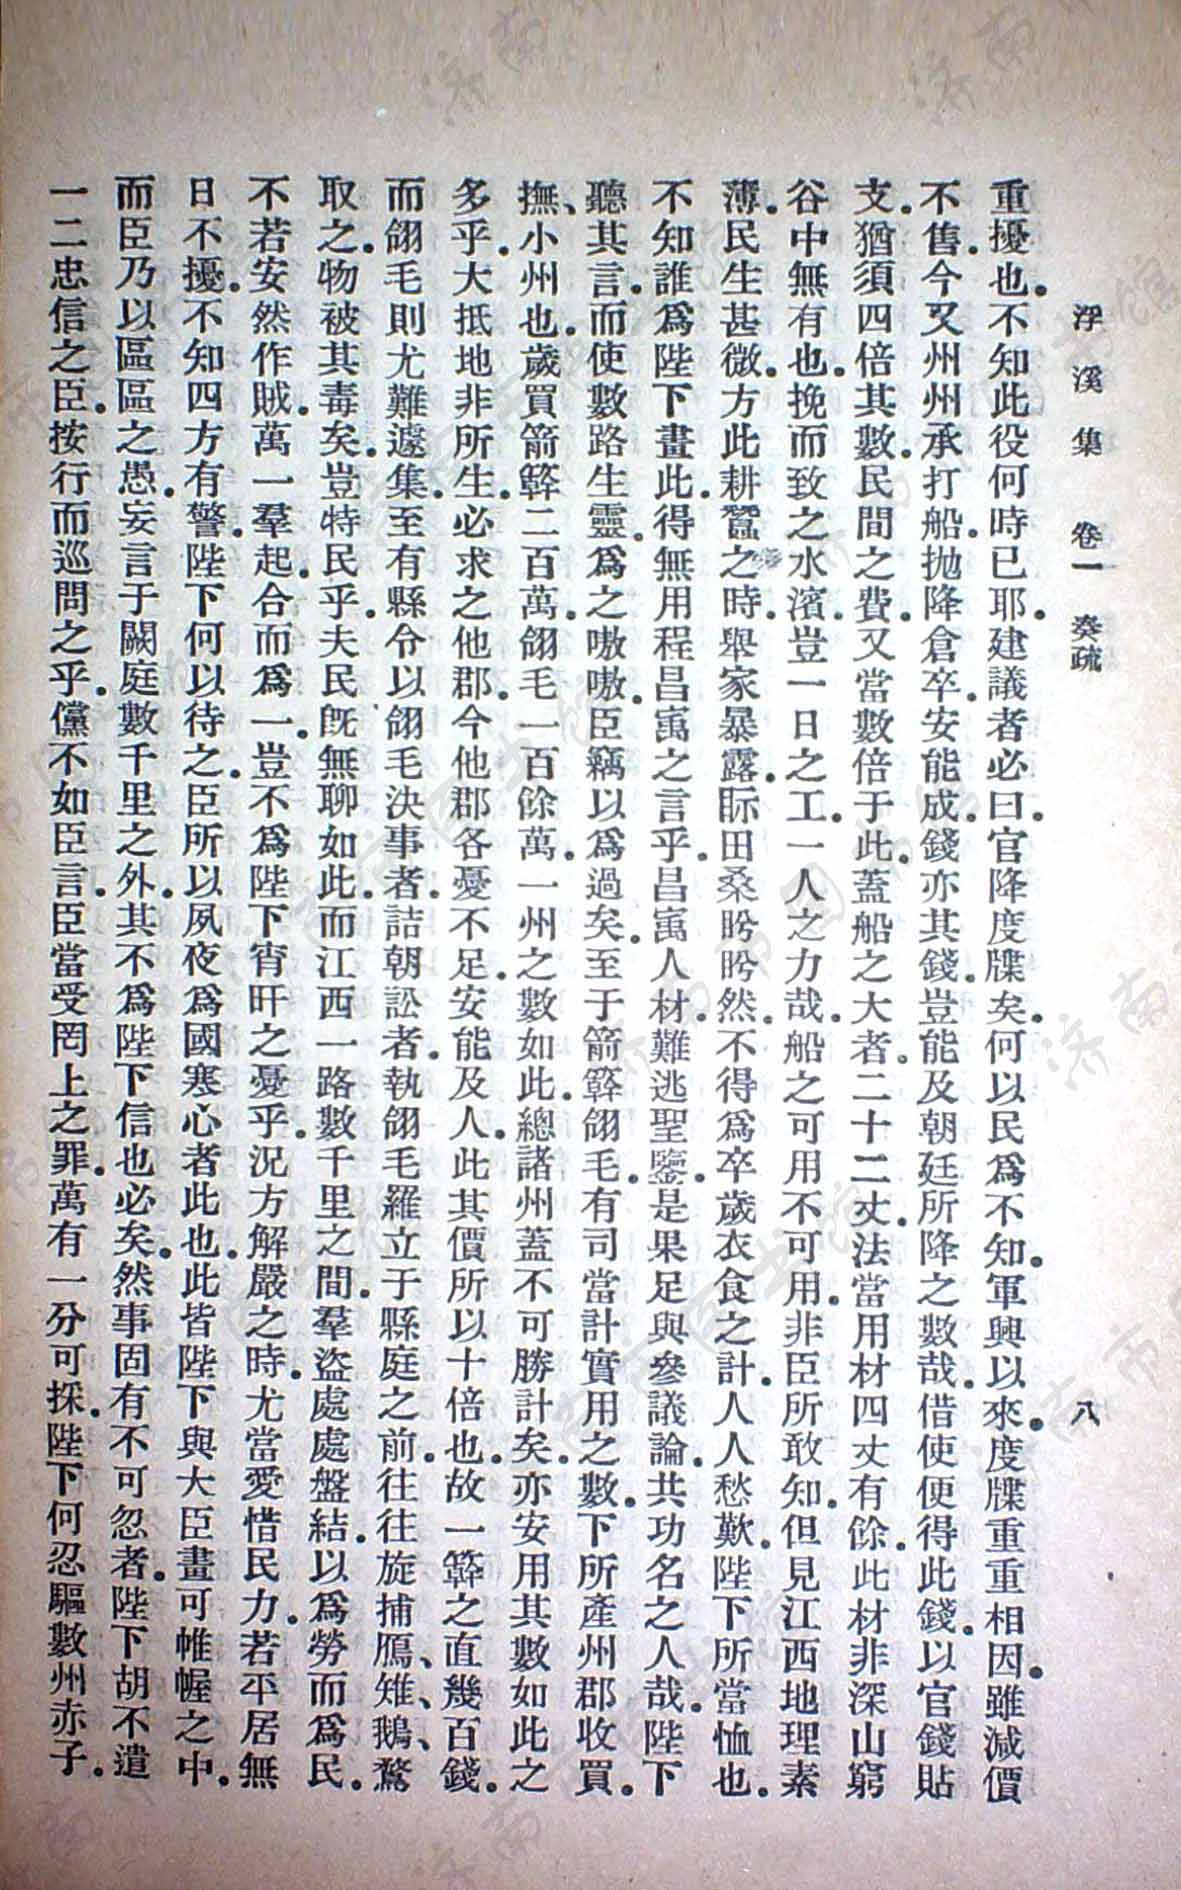 浮溪集　卷一　奏疏　八
重擾也。不知此役何時已耶。建議者必曰。官降度牒矣。何以民爲不知。軍興以來。度牒重重相因。雖減價
不售。今又州州承打船。抛降倉卒。安能成錢。亦其錢豈能及朝廷所降之數哉。借使便得此錢。以官錢貼
支。猶須四倍其數。民間之費。又當數倍于此。蓋船之大者。二十二丈。法當用材四丈有餘。此材非深山窮
谷中無有也。挽而致之水濱。豈一日之工。一人之力哉。船之可用不可用。非臣所敢知。但見江西地理素
薄。民生甚微。方此耕蠶之時。舉家暴露。眎田桑盻盻然。不得爲卒歲衣食之計。人人愁歎。陛下所當恤也。
不知誰爲陛下畫此。得無用程昌㝢之言乎。昌㝢人材。難逃聖鑒。是果足與參議論。共功名之人哉。陛下
聽其言。而使數路生靈。爲之嗷嗷。臣竊以爲過矣。至于箭簳翎毛。有司當計實用之數。下所產州郡收買。
撫、小州也。歲買箭簳二百萬。翎毛一百餘萬。一州之數如此。總諸州蓋不可勝計矣。亦安用其數如此之
多乎。大抵地非所生。必求之他郡。今他郡各憂不足。安能及人。此其價所以十倍也。故一簳之直幾百錢。
而翎毛則尤難遽集。至有縣令以翎毛決事者。詰朝訟者。執翎毛羅立于縣庭之前。往往旋捕鴈、雉、鵝、鶩
取之。物被其毒矣。豈特民乎。夫民旣無聊如此。而江西一路數千里之間。羣盜處處盤結。以爲勞而爲民。
不若安然作賊。萬一羣起。合而爲一。豈不爲陛下宵旰之憂乎。況方解嚴之時。尤當愛惜民力。若平居無
日不擾。不知四方有警。陛下何以待之。臣所以夙夜爲國寒心者此也。此皆陛下與大臣畫可帷幄之中。
而臣乃以區區之愚。妄言于闕庭數千里之外。其不爲陛下信也必矣。然事固有不可忽者。陛下胡不遣
一二忠信之臣。按行而巡問之乎。儻不如臣言。臣當受罔上之罪。萬有一分可採。陛下何忍驅數州赤子。